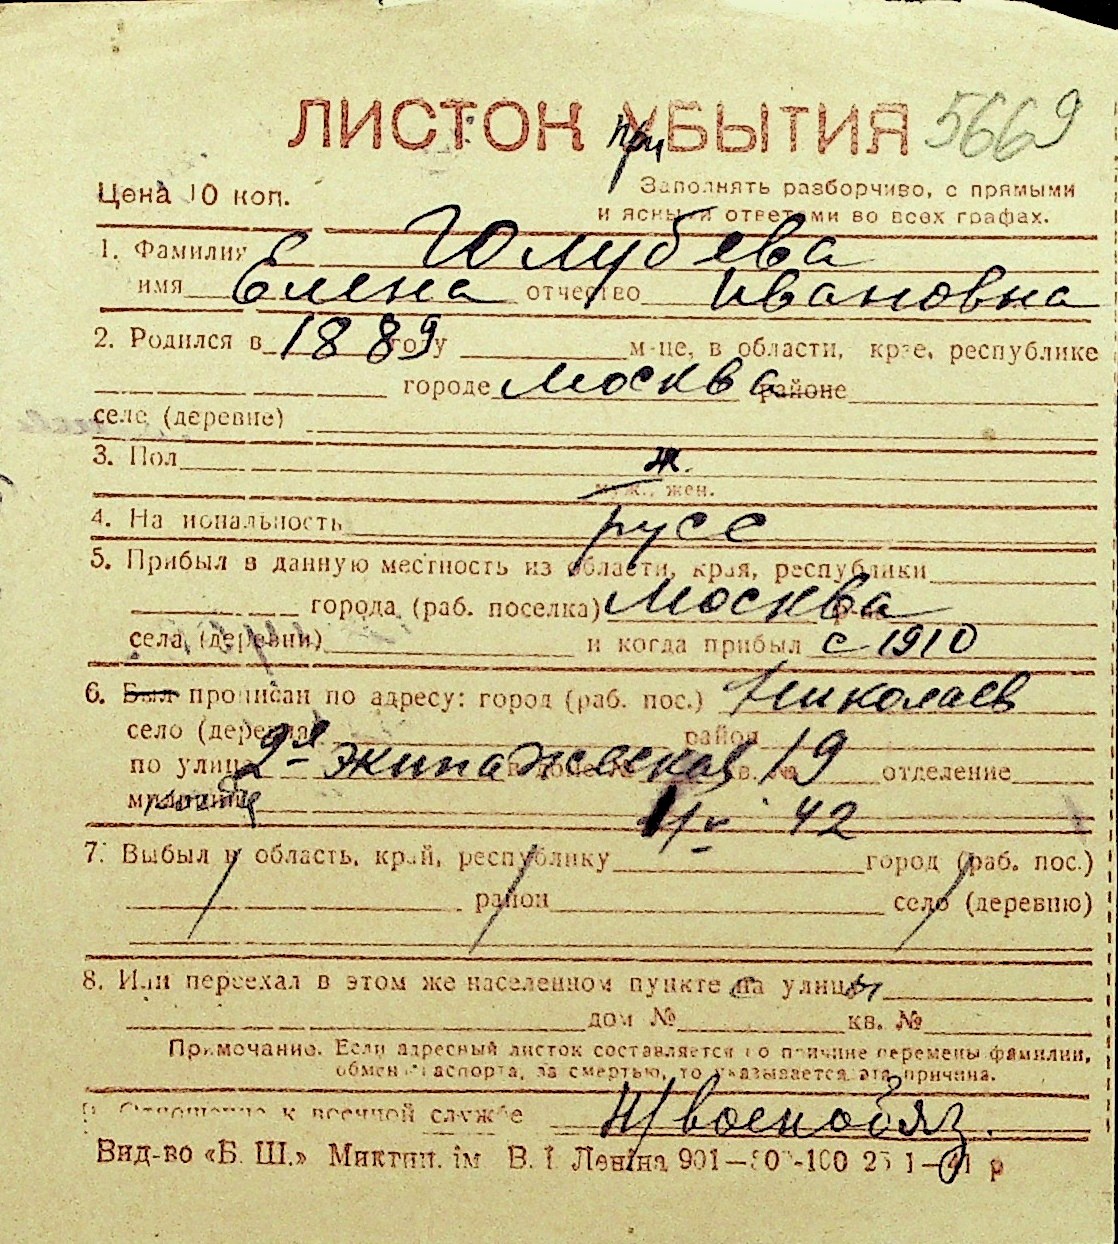 ЛИСТОК УБЫТИЯ 5669
при
Цена 10 коп. Заполнять разборчиво, с прямыми
и ясными ответами во всех графах.
1. Фамилия Голубева
имя Елена отчество Ивановна
2. Родился в 1889 году м-це, в области, крае, республике
городе Москва районе
селе (деревне)
3. Пол ж.
муж., жен.
4. Национальность русс
5. Прибыл в данную местность из области, края, республики
города (раб. поселка) Москва
села (деревни) и когда прибыл с 1910
6. Был прописан по адресу: город (раб. пос.) Николаев
село (деревня) район
по улице 2я Экипажеская 19 кв. № отделение
милиции 42
7. Выбыл в область, край, республику город (раб. пос.)
район село (деревню)
8. Или переехал в этом же населенном пункте на улицы
дом № кв. №
Примечание. Если адресный листок составляется по причине перемены фамилии,
обмен паспорта, за смертью, то указывается эта причина.
9. Отношение к военной службе н/военобяз.
Вид-во «Б. Ш.» Миктип. ім В. І. Леніна 901